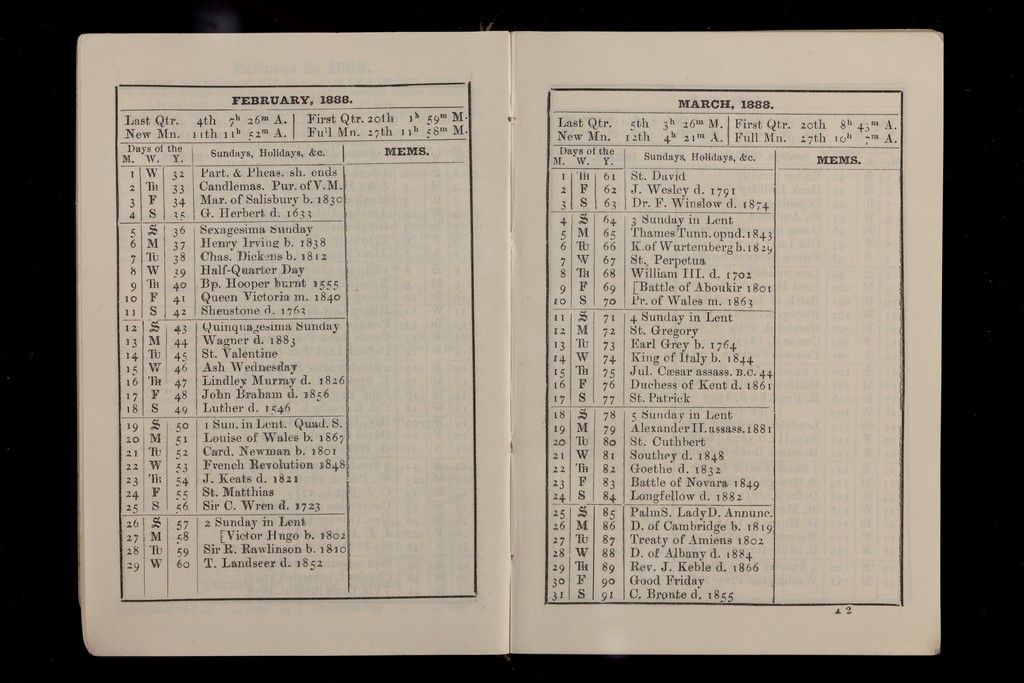 FEBRUARY, 1888.
Last Qtr. 4th 7h 26m A. First Qtr. 20th 1h 59m M.
New Mn. 11th 11h 52m A. Full Mn. 27th 11h 58m M.
Days of the
M. W. Y. Sundays, Holidays, &c. MEMS.
1 W 32 Part. & Pheas. sh. ends
2 Th 33 Candlemas. Pur. of V.M.
3 F 34 Mar. of Salisbury b. 1830
4 S 35 G. Herbert d. 1633
5 S 36 Sexagesima Sunday
6 M 37 Henry Irving b. 1838
7 Tu 38 Chas. Dickens b. 1812
8 W 39 Half-Quarter Day
9 Th 40 Bp. Hooper burnt 1555
10 F 41 Queen Victoria m. 1840
11 S 42 Shenstone d. 1763
12 S 43 Quinquagesima Sunday
13 M 44 Wagner d. 1883
14 Tu 45 St. Valentine
15 W 46 Ash Wednesday
16 Th 47 Lindley Murray d. 1826
17 F 48 John Braham d. 1856
18 S 49 Luther d. 1546
19 S 50 1 Sun. in Lent. Quad. S.
20 M 51 Louise of Wales b. 1867
21 Tu 52 Card. Newman b. 1801
22 W 53 French Revolution 1848
23 Th 54 J. Keats d. 1821
24 F 55 St. Matthias
25 S 56 Sir C. Wren d. 1723
26 S 57 2 Sunday in Lent
27 M 58 [Victor Hugo b. 1802
28 Tu 59 Sir R. Rawlinson b. 1810
29 W 60 T. Landseer d. 1852
MARCH, 1888.
Last Qtr. 5th 3h 26m M. First Qtr. 20th 8h 43m A.
New Mn. 12th 4h 21m A. Full Mn. 27th 10h 7m A.
Days of the
M. W. Y. Sundays, Holidays, &c. MEMS.
1 Th 61 St. David
2 F 62 J. Wesley d. 1791
3 S 63 Dr. F. Winslow d. 1874
4 S 64 3 Sunday in Lent
5 M 65 Thames Tunn. opnd. 1843
6 Tu 66 K. of Wurtemberg b. 1829
7 W 67 St. Perpetua
8 Th 68 William III. d. 1702
9 F 69 [Battle of Aboukir 1801
10 S 70 Pr. of Wales m. 1863
11 S 71 4 Sunday in Lent
12 M 72 St. Gregory
13 Tu 73 Earl Grey b. 1764
14 W 74 King of Italy b. 1844
15 Th 75 Jul. Cæsar assass. B.C. 44
16 F 76 Duchess of Kent d. 1861
17 S 77 St. Patrick
18 S 78 5 Sunday in Lent
19 M 79 Alexander II. assass. 1881
20 Tu 80 St. Cuthbert
21 W 81 Southey d. 1848
22 Th 82 Goethe d. 1832
23 F 83 Battle of Novara 1849
24 S 84 Longfellow d. 1882
25 S 85 Palm S. Lady D. Annunc.
26 M 86 D. of Cambridge b. 1819
27 Tu 87 Treaty of Amiens 1802
28 W 88 D. of Albany d. 1884
29 Th 89 Rev. J. Keble d. 1866
30 F 90 Good Friday
31 S 91 C. Bronte d. 1855
A 2